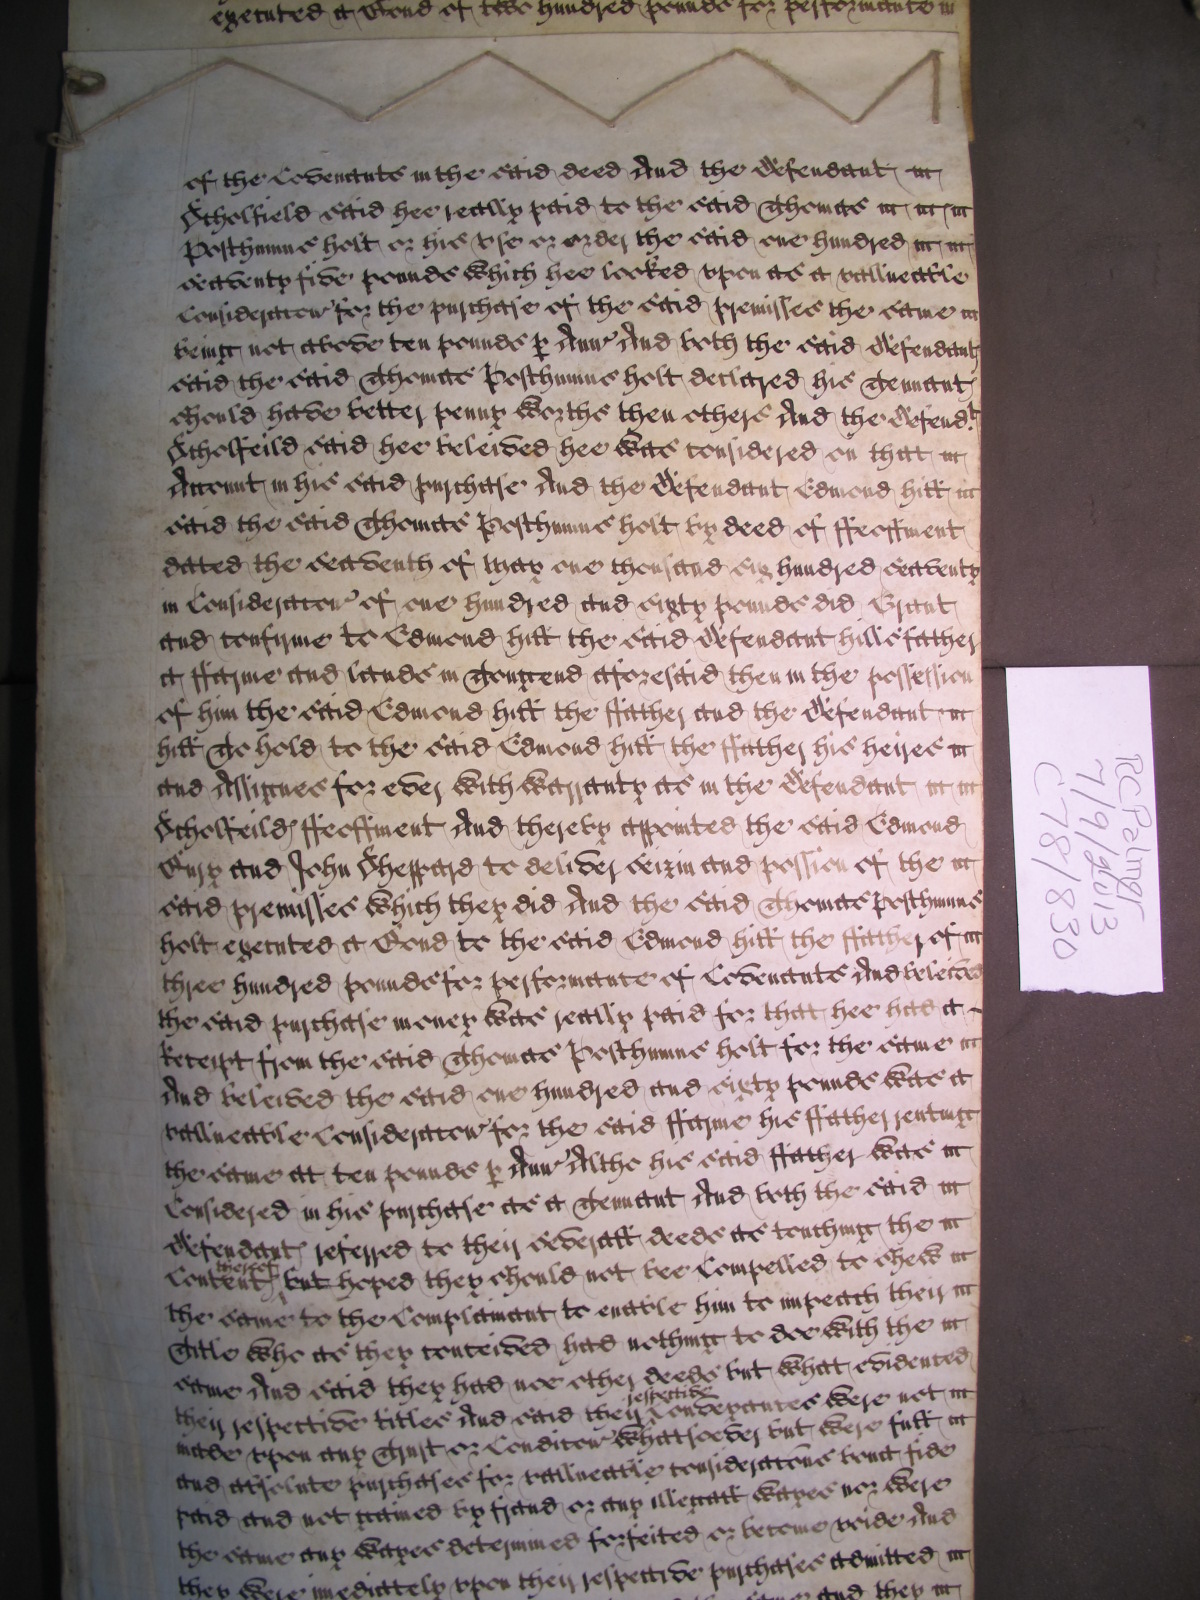 executed a Bond of two hundred pounds for performance in
of the Covenants in the said deed And the Defendant
Scholfield said hee really paid to the said Thomas
Posthumus holt or his vse or order the said one hundred
seaventy five pounds which hee looked vpon as a valluable
Consideracon for the purchase of the said premisses the same
being not above ten pounds p Ann And both the said Defendants
said the said Thomas Posthumus holt declared his Tennants
should have better penny worths then others And the Defendt
Scholfeild said hee beleived hee was considered on that
Account in his said purchase And the Defendant Edmond hill
said the said Thomas Posthumus holt by deed of ffeoffment
dated the seaventh of may one thousand six hundred seaventy
in Consideracon of one hundred and sixty pounds did Grant
and confirme to Edmond hill the said Defendant hills father
a ffarme and lands in aforesaid then in the possession
of him the said Edmond hill the ffather and the Defendant
hill To hold to the said Edmond hill the ffather his heires
and Assignes for ever with warranty as in the Defendant
Scholfeilds ffeoffment And thereby appointed the said Edmond
and John Sheppard to deliver seizin and possion of the
said premisses which they did And the said Thomas Posthumus
holt executed a Bond to the said Edmond hill the ffather of
three hundred pounds for performance of Covenants And beleived
the said purchase money was really paid for that hee had a
Receipt from the said Thomas Posthumus holt for the same
And beleived the said one hundred and sixty pounds was a
valluable Consideracon for the said ffarme his ffather renting
the same at ten pounds p Ann Altho his said ffather was
Considered in his purchase as a Tennant And both the said
Defendants referred to their severall deeds as touching the
Contents thereof but hoped they should not bee Compelled to shew
the same to the Complainant to enable him to impeach their
Title who as they conceived had nothing to doe with the
same And said they had noe other deeds but what evidenced
their respective titles And said their respective Conveyances were not
made vpon any Trust or Condicon whatsoever but were full
and absolute purchases for valluable consideracons bona fide
paid and not gained by fraud or any illegall wayes nor were
the same any wayes determined forfeited or become voide And
they were imediately vpon their respective purchases admitted
and they
RCPalmer
7/9/2013
C78/830